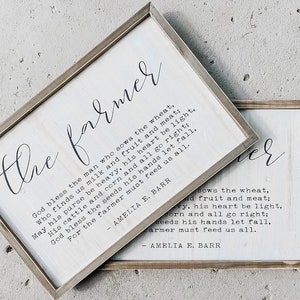 the farmer
God bless the man who sows the wheat,
Who finds us milk and fruit and meat;
May his purse be heavy, his heart be light,
His cattle and corn and all go right;
God bless the seeds his hands let fall,
For the farmer must feed us all.
- AMELIA E. BARR
mer
sows the wheat,
and fruit and meat;
vy, his heart be light,
and all go right;
his hands let fall,
armer must feed us all.
- AMELIA E. BARR